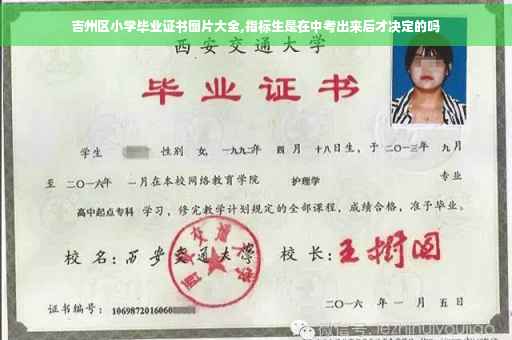 吉州区小学毕业证书图片大全,指标生是在中考出来后才决定的吗
西安交通大学
毕业证书
学生 性别 女,一九九二年 四月 十八日生,于二〇一三年 九月
至 二〇一六年 一月在本校网络教育学院 护理学 专业
高中起点专科 学习,修完教学计划规定的全部课程,成绩合格,准予毕业。
校名:西安交通大学 校长:王树国
西安交通大学
证书编号:1069872016060 二〇一六年一月五日
微信号:jezhinuiyoujiao